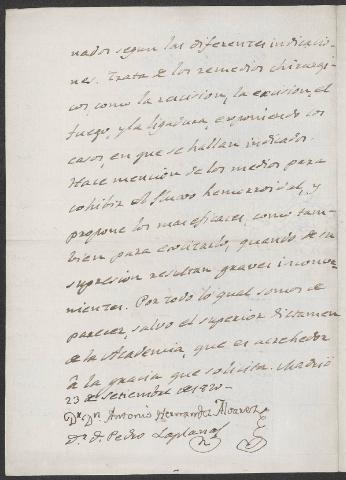 nados segun las diferentes indicacio-
nes. Trata de los remedios chirurgi-
cos, como la recision, la excision, el
fuego, y la ligadura, exponiendo los
casos, en que se hallan indicados.
Hace mencion de los medios para
cohibir el fluxo hemorroidal, y
propone los mas eficaces, como tam-
bien para excitarlo, quando de su
supresion resultan graves inconve-
nientes. Por todo lo qual somos de
parecer, salvo el superior dictamen
de la Academia, que es acrehedor
à la gracia que solicita. Madrid
23 de Setiembre de 1820-
Dr. Dn. Antonio Hernandez Alvarez
Dr. d. Pedro Laplana